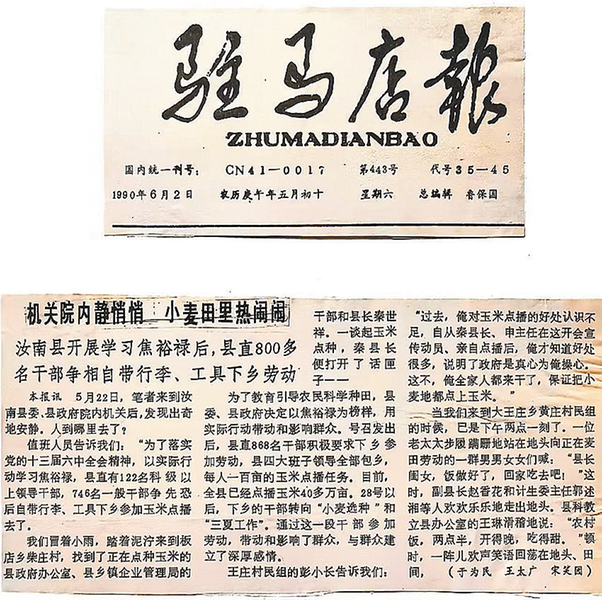 驻马店报
ZHUMADIANBAO
国内统一刊号：CN41—0017 第443号 代号35—45
1990年6月2日 农历庚午年五月初十 星期六 总编辑 鲁保国
机关院内静悄悄 小麦田里热闹闹
汝南县开展学习焦裕禄后，县直800多
名干部争相自带行李、工具下乡劳动
本报讯 5月22日，笔者来到汝
南县委、县政府院内机关后，发现出奇
地安静。人到哪里去了？
值班人员告诉我们：“为了落实
党的十三届六中全会精神，以实际行
动学习焦裕禄，县直有122名科级以
上领导干部，746名一般干部争先恐
后自带行李、工具下乡参加玉米点播
去了。
我们冒着小雨，踏着泥泞来到板
店乡柴庄村，找到了正在点种玉米的
县政府办公室、县乡镇企业管理局的
干部和县长秦世
祥。一谈起玉米
点种，秦县长
便打开了话匣
子——
为了教育引导农民科学种田，县
委、县政府决定以焦裕禄为榜样，用
实际行动带动和影响群众。号召发出
后，县直868名干部积极要求下乡参
加劳动，县四大班子领导全部包乡，
每人一百亩的玉米点播任务。目前，
全县已经点播玉米40多万亩。28号以
后，下乡的干部转向“小麦选种”和
“三夏工作”。通过这一段干部参加
劳动，带动和影响了群众，与群众建
立了深厚感情。
王庄村民组的彭小长告诉我们：
“过去，俺对玉米点播的好处认识不
足，自从秦县长、申主任在这开会宣
传动员、亲自点播后，俺才知道好处
很多，说明了政府是真心为俺操心。
这不，俺全家人都来干了，保证把小
麦地都点上玉米。”
当我们来到大王庄乡黄庄村民组
的时候，已是下午两点一刻了。一位
老太太步履蹒跚地站在地头向正在麦
田劳动的一群男男女女们喊：“县长
闺女，饭做好了，回家吃去吧！”这
时，副县长赵香花和计生委主任郭述
湘等人欢欢乐乐地走出地头。县科教
立县办公室的王琳滑稽地说：“农村
饭，两点半，开得晚，吃得甜。”顿
时，一阵儿欢声笑语回荡在地头、田
间，（于为民 王太广 宋笑团）